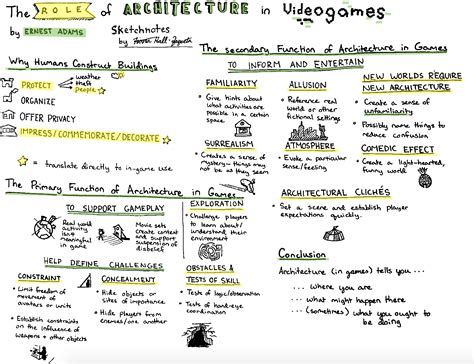 The ROLE of ARCHITECTURE in Videogames
by ERNEST ADAMS
Sketchnotes
by
Why Humans Construct Buildings
PROTECT
weather
theft
people
ORGANIZE
OFFER PRIVACY
IMPRESS/COMMEMORATE/DECORATE
= translate directly to in-game use
The Primary Function of Architecture in Games
TO SUPPORT GAMEPLAY
Real world
activity
isn't
meaningful
in game
Movie sets
create context
and support
suspension of
disbelief
EXPLORATION
• Challenge players
to learn about/
understand their
environment
HELP DEFINE CHALLENGES
CONSTRAINT
• Limit freedom of
movement of
avatars or units
• Establish constraints
on the influence of
weapons + other objects
CONCEALMENT
• Hide objects or
sites of importance
• Hide players from
enemies/one another
OBSTACLES &
TESTS OF SKILL
• Tests of logic/observation
• Tests of hand-eye
coordination
The secondary Function of Architecture in Games
TO INFORM AND ENTERTAIN
FAMILIARITY
• Give hints about
what activities
are possible in a
certain space
ALLUSION
• Reference real
world or other
fictional settings
NEW WORLDS REQUIRE
NEW ARCHITECTURE
• Create a sense of
unfamiliarity
• Possibly name things to
reduce confusion
SURREALISM
• Creates a sense of
mystery - things may
not be as they seem
ATMOSPHERE
• Evoke a particular
sense/feeling
COMEDIC EFFECT
• Create a light-hearted,
funny world
ARCHITECTURAL CLICHÉS
• Set a scene and establish player
expectations quickly.
Conclusion
Architecture (in games) tells you ...
... where you are
... what might happen there
... (sometimes) what you ought to
be doing